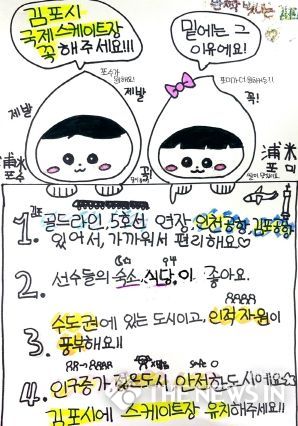 김포시
국제스케이트장
꼭 해주세요!!!
밑에는 그
이유예요!
제발
제발
꼭!
꼭!
浦米
포수
浦米
포미
1. 김포 골드라인, 5호선 연장, 인천공항, 김포공항
있어서, 가까워서 편리해요♡
2. 선수들의 숙소, 식당,이 좋아요.
3. 수도권에 있는 도시이고, 인적자원이
풍부해요!!
4. 인구증가 젊은도시 안전한도시예요
김포시에 스케이트장 유치해주세요!!
THE NEWS IN